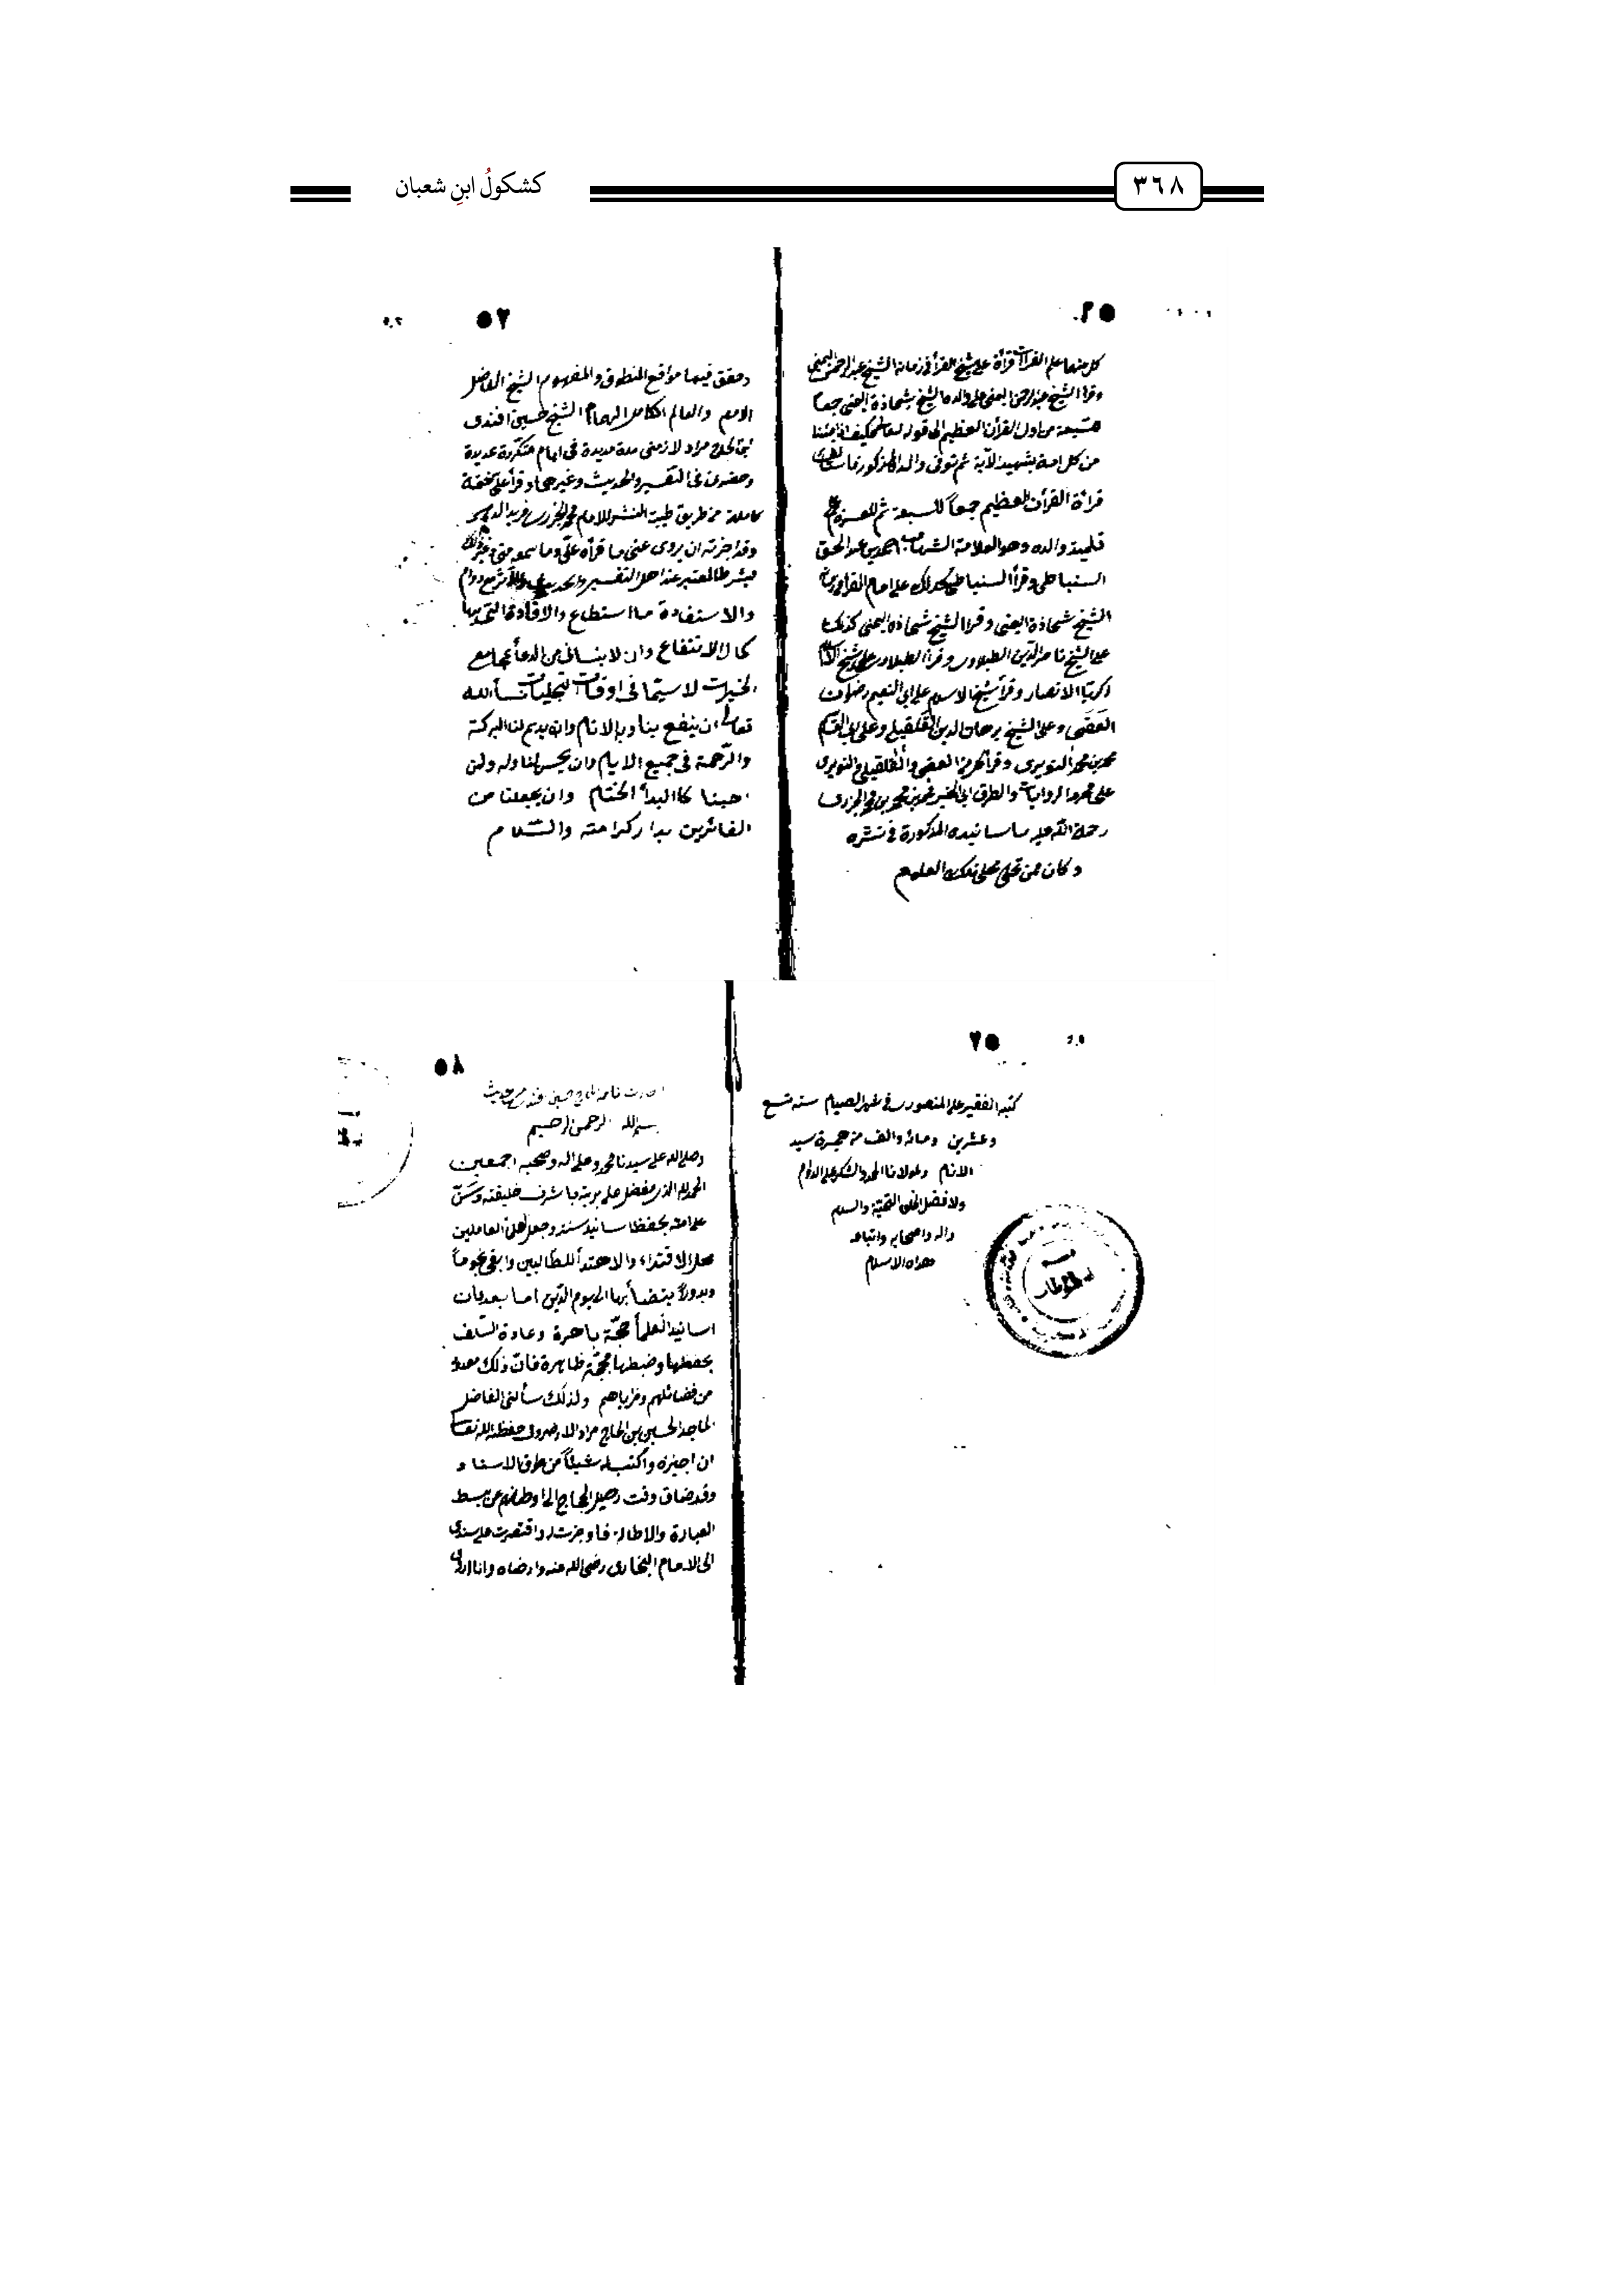 ٣٦٨
كشكولُ ابنِ شعبان
كل منهما علم القرآت قرأة على شيخ القرأ فى زمانه الشيخ عبد الرحمن اليمنى
وقرأ الشيخ عبد الرحمن اليمنى على والده الشيخ شحاذة اليمنى جمعا
من اول القرآن العظيم الى قوله تعالى فكيف اذا جئنا
من كل امة بشهيد الآية ثم توفى والده المذكور
قرأة القرآن العظيم جمعاً للسبعة ثم للعشرة على
تلميذ والده وهو العلامة الشهاب احمد بن عبد الحق
السنباطى وقرأ السنباطى كذلك على امام القرأ
الشيخ شحاذة اليمنى وقرأ الشيخ شحاذة اليمنى كذلك
على الشيخ ناصر الدين الطبلاوى وقرأ الطبلاوى على شيخ الاسلام
زكريا الانصارى وقرأ شيخ الاسلام على ابى النعيم رضوان
العقبى وعلى الشيخ برهان الدين القلقيلى وعلى ابى القاسم
محمد بن محمد النويرى وقرأ كل من العقبى والقلقيلى والنويرى
على محرر الروايات والطرق ابى الخير محمد بن محمد بن محمد الجزرى
رحمة الله عليه باسانيده المذكورة فى نشره
وكان ممن تحلى بحلى تلك العلوم
٥٧
وحقق فيها مواقع المنطوق والمفهوم الشيخ الفاضل
والعالم الكامل الهمام الشيخ حسين افندى
بن الحاج مراد لازمنى مدة مديدة فى ايام متكررة عديدة
وحضرنى فى التفسير والحديث وغيرهما وقرأ على ختمة
كاملة من طريق طيبة النشر للامام محمد الجزرى فريد الدهر
وقد اجزته ان يروى عنى ما قرأه علىّ وما سمعه منى
بشرطه المعتبر عند اهل التفسير والحديث والاثر مع دوام
والاستفادة ما استطاع والافادة
كمال الانتفاع وان لا ينسانى من الدعأ بمجامع
الخيرات لا سيما فى اوقات التجليات نسأ الله
تعالى ان ينفع بنا وبه الانام وان يديم لنا البركة
والرّحمة فى جميع الايام وان يحسن لنا وله ولمن
احبنا كالبدأ الختام وان يجعلنا من
الفائزين بدار كرامته والسّلام
كتبه الفقير على المنصورى فى شهر الصيام سنه تسع
وعشرين ومائه والف من هجرة سيد
الانام ولمولانا الحمد والشكر على الدوام
ولافضل الخلق التحيّة والسلام
واله واصحابه واتباعه
هداه الاسلام
٥٨
بسم الله الرحمن الرحيم
وصلى الله على سيدنا محمد وعلى اله وصحبه اجمعين
الحمد لله الذى تفضل على بريته باشرف خليقته ومَنّ
على امته بحفظ اسانيد سنته وجعل اهلها العاملين
محلا للاقتداء والاهتدأ للطالبين وابقى نجوماً
وبدوراً يتضأ بها الى يوم الدّين اما بعد فان
اسانيد العلمأ حجّة باهرة وعادة السّلف
بحفظها وضبطها محجّة ظاهرة فانّ ذلك معدود
من فضائلهم ومزياهم ولذلك سألنى الفاضل
الماجد الحسين بن الحاج مراد الارضرومى حفظه الله تعالى
ان اجيزه واكتب له شيئاً من طرق الاسناد
وقد ضاق وقت رحيل الحجاج الى اوطانهم عن بسط
العبارة والاطالة فاوجزت له واقتصرت على سندى
الى الامام البخارى رضى الله عنه وارضاه وانا اروى